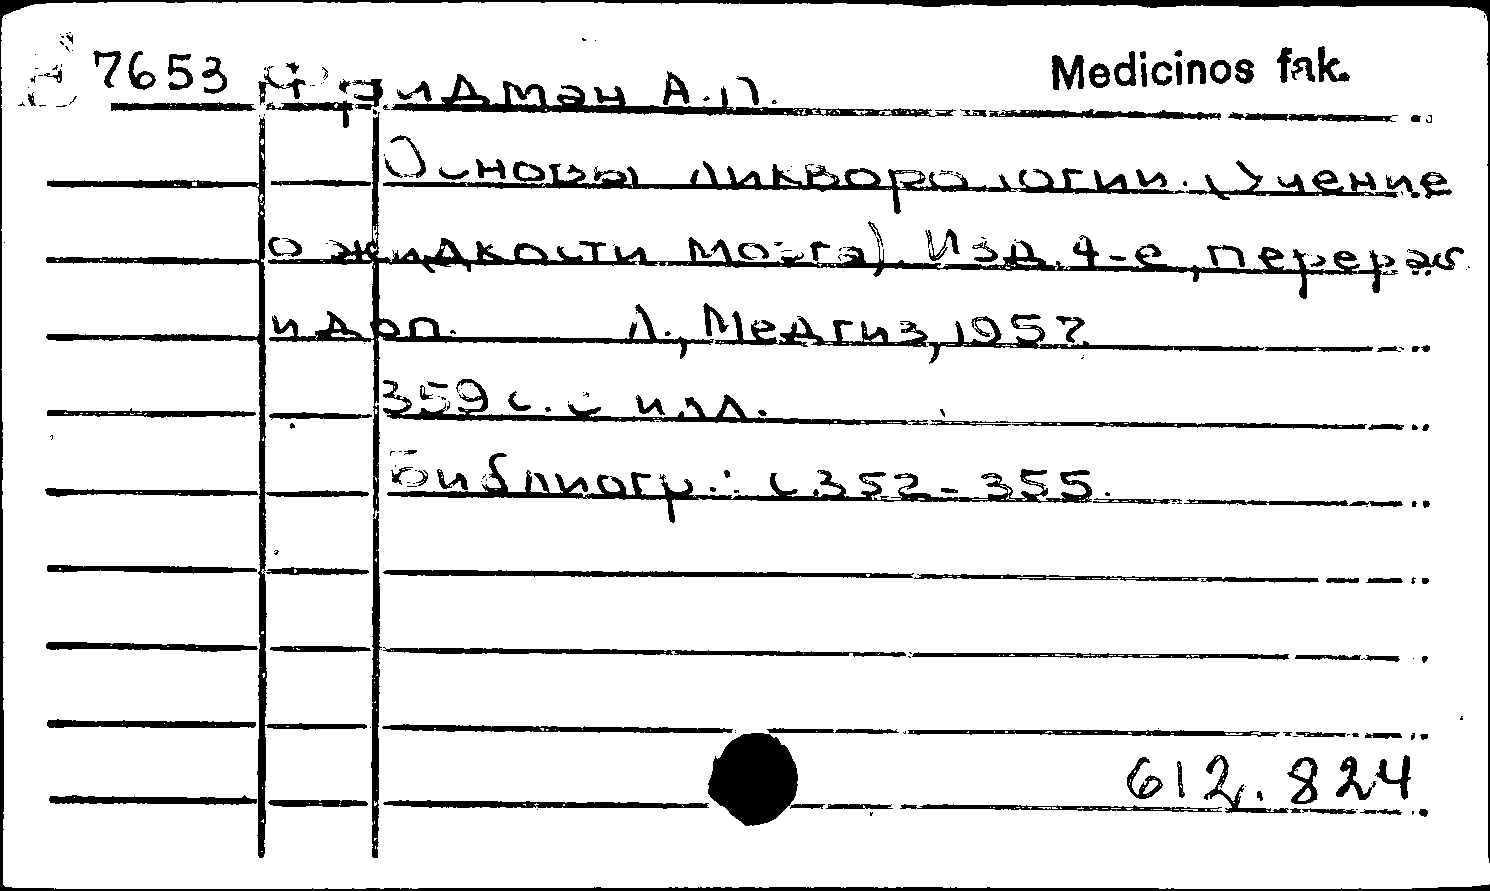 В 7653 Фридман А.П. Medicinos fak.
Основы ликворологии. (Учение
о жидкости мозга). Изд. 4-е, перераб.
и доп. Л., Медгиз, 1957.
359 с. с илл.
Библиогр.: с. 352-355.
612.824